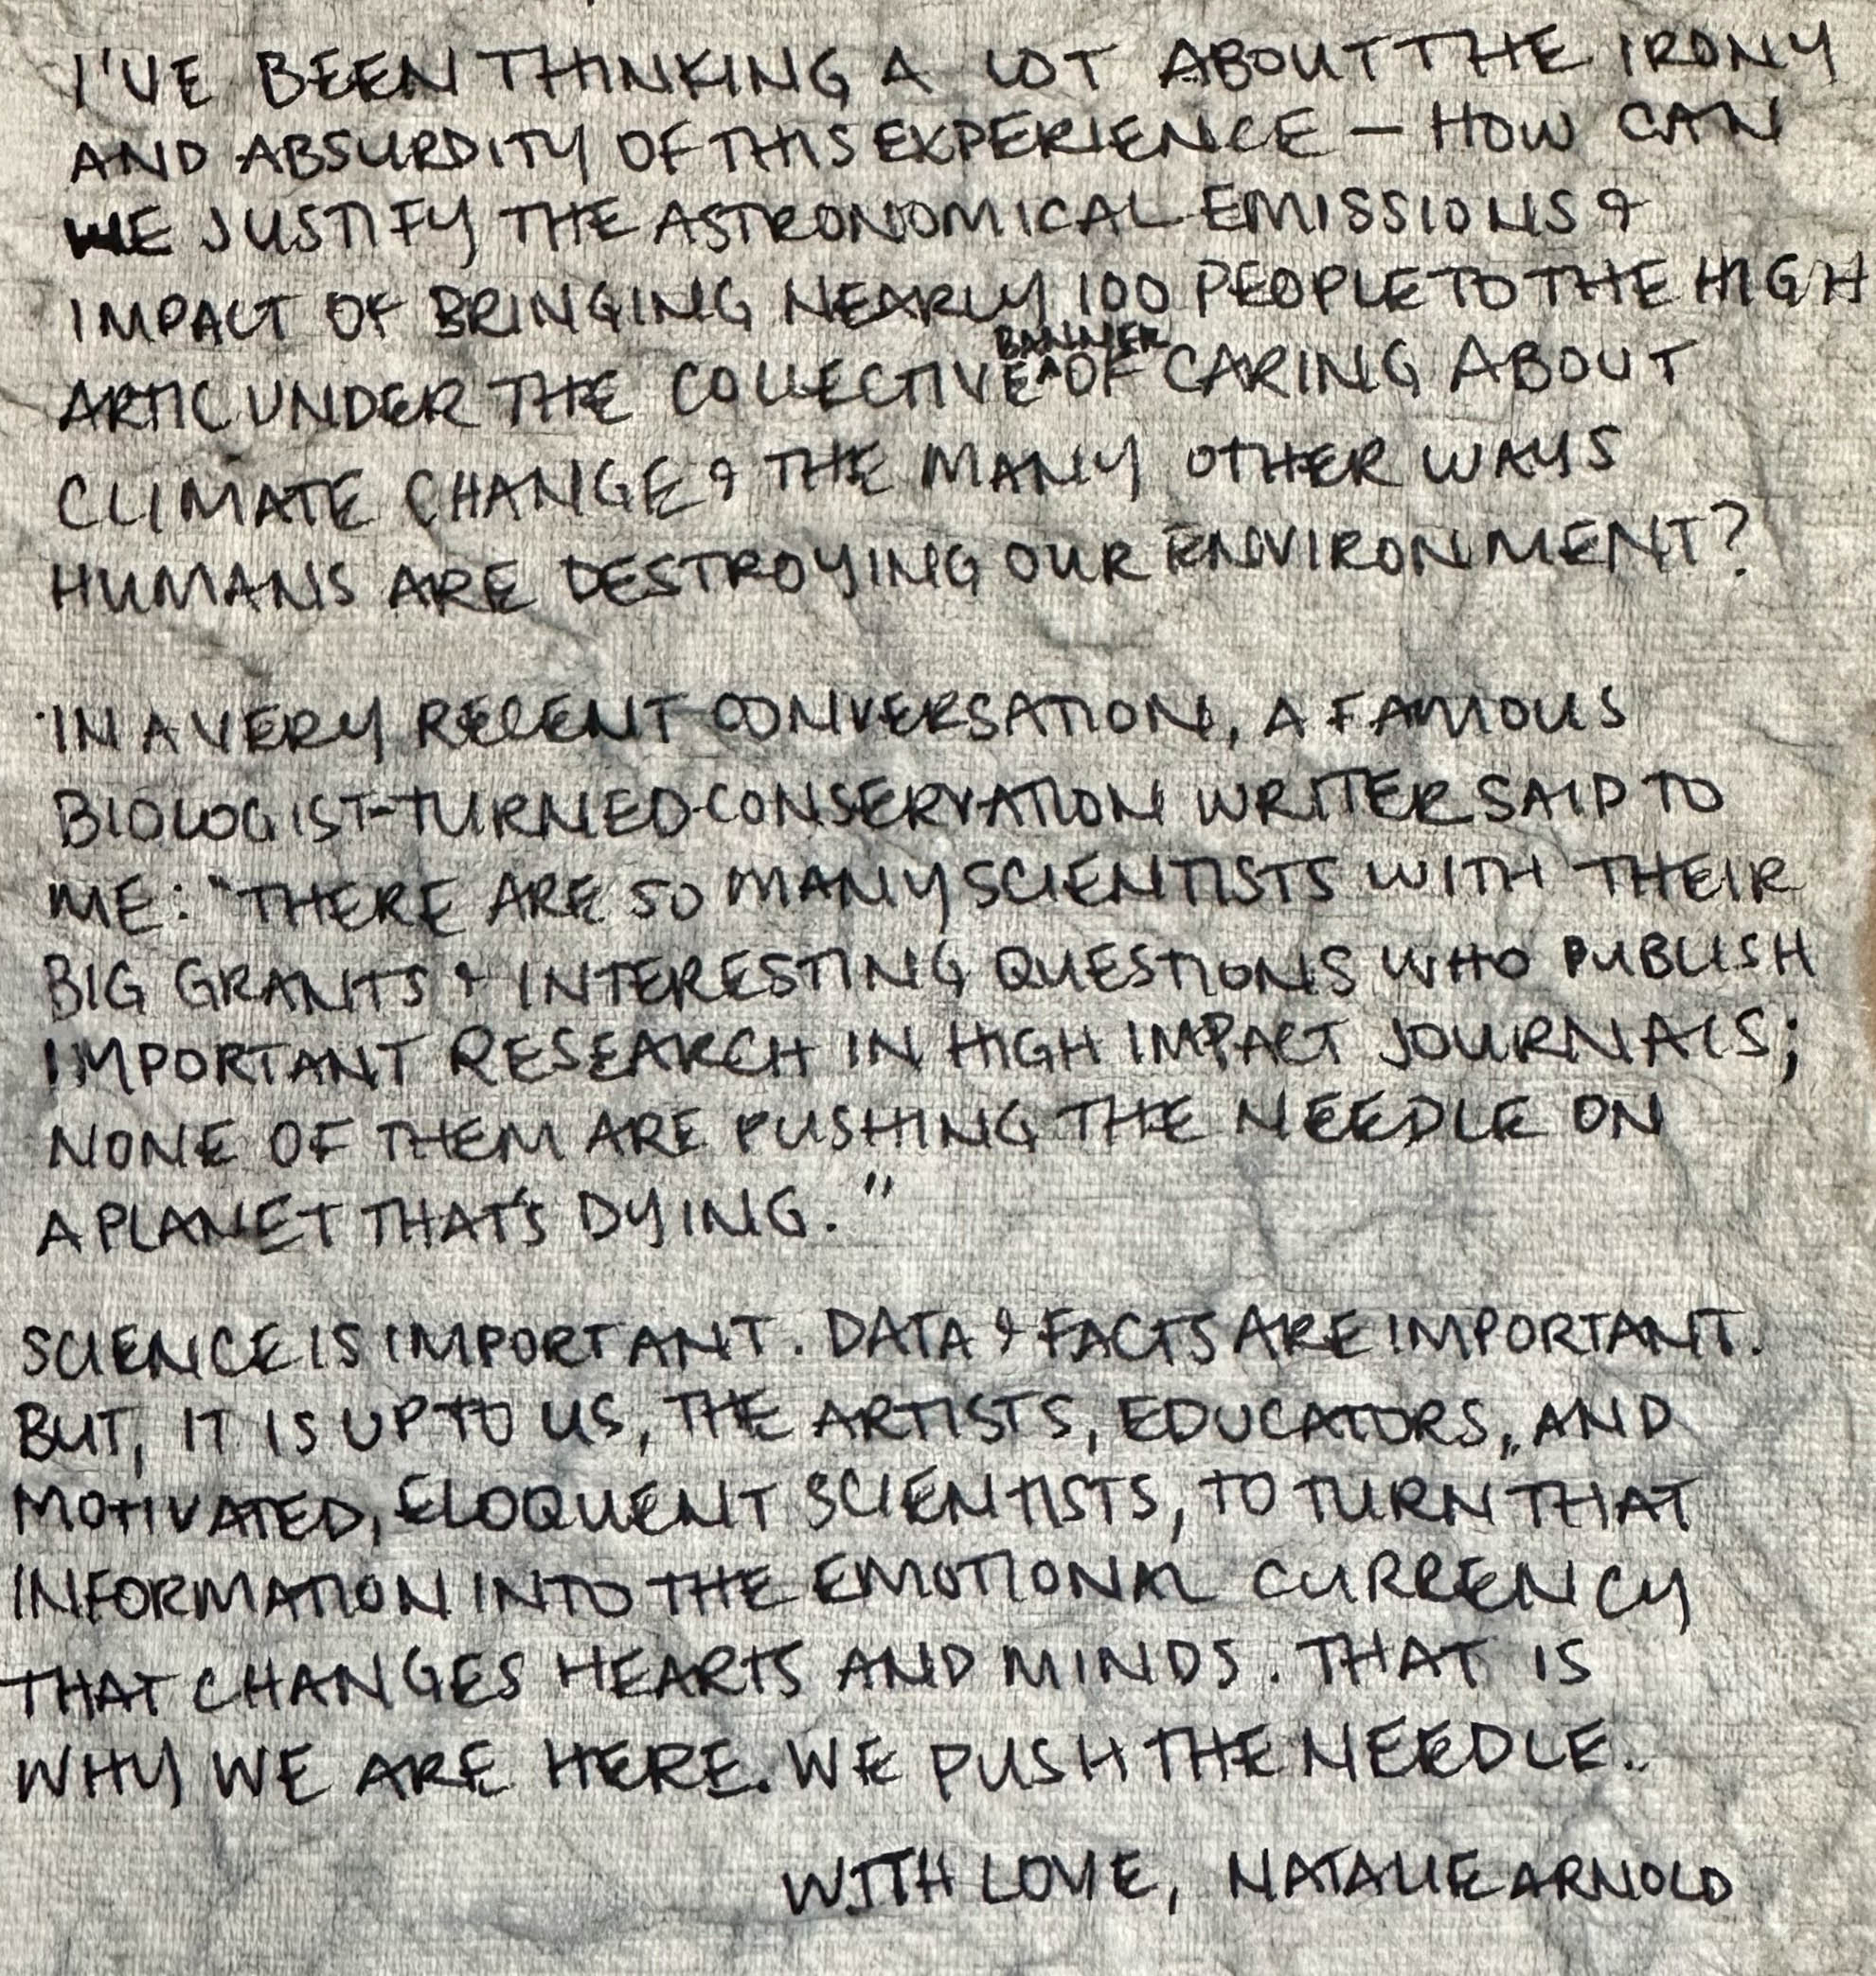 I'VE BEEN THINKING A LOT ABOUT THE IRONY
AND ABSURDITY OF THIS EXPERIENCE — HOW CAN
WE JUSTIFY THE ASTRONOMICAL EMISSIONS &
IMPACT OF BRINGING NEARLY 100 PEOPLE TO THE HIGH
ARTIC UNDER THE COLLECTIVE BANNER OF CARING ABOUT
CLIMATE CHANGE & THE MANY OTHER WAYS
HUMANS ARE DESTROYING OUR ENVIRONMENT?
IN A VERY RECENT CONVERSATION, A FAMOUS
BIOLOGIST-TURNED-CONSERVATION WRITER SAID TO
ME: "THERE ARE SO MANY SCIENTISTS WITH THEIR
BIG GRANTS & INTERESTING QUESTIONS WHO PUBLISH
IMPORTANT RESEARCH IN HIGH IMPACT JOURNALS;
NONE OF THEM ARE PUSHING THE NEEDLE ON
A PLANET THAT'S DYING."
SCIENCE IS IMPORTANT. DATA & FACTS ARE IMPORTANT.
BUT, IT IS UP TO US, THE ARTISTS, EDUCATORS, AND
MOTIVATED, ELOQUENT SCIENTISTS, TO TURN THAT
INFORMATION INTO THE EMOTIONAL CURRENCY
THAT CHANGES HEARTS AND MINDS. THAT IS
WHY WE ARE HERE. WE PUSH THE NEEDLE..
WITH LOVE, NATALIE ARNOLD